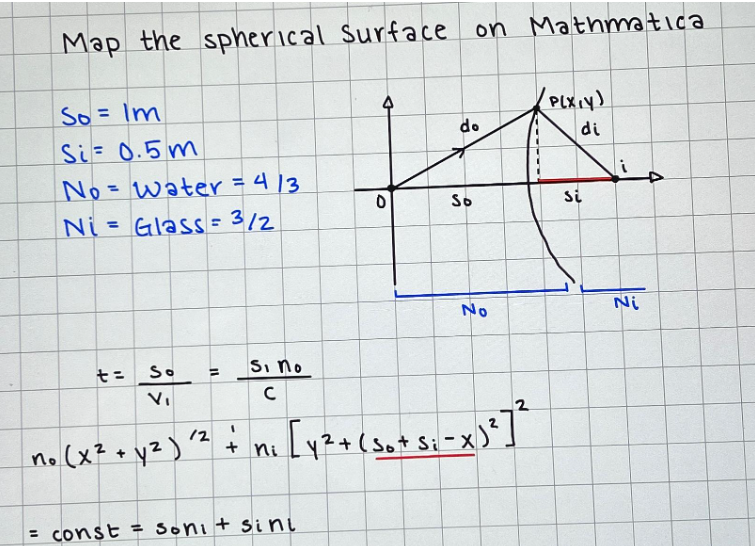 Map the spherical surface on Mathmatica
So = 1m
Si = 0.5m
No = Water = 4/3
Ni = Glass = 3/2
P(x,y)
do
di
i
O
So
Si
No
Ni
t = So/V₁ = S₁ n₀/C
n₀(x² + y²)^1/2 + ni [y² + (So + Si - x)²]²
= const = Son₁ + Sini